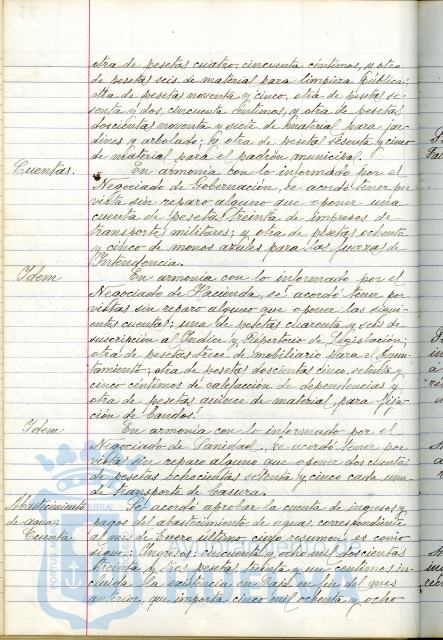 otra de pesetas cuatro, cincuenta céntimos, y otra
de pesetas seis de material para limpieza Pública;
otra de pesetas noventa y cinco, otra de pesetas se-
senta y dos, cincuenta céntimos, y otra de pesetas
doscientas noventa y siete de material para jar-
dines y arbolado; y otra de pesetas sesenta y cinco
de material para el padrón municipal.
Cuentas. En armonía con lo informado por el
Negociado de Gobernación, se acordó tener por
vista sin reparo alguno que oponer una
cuenta de pesetas treinta de impresos de
transportes militares; y otra de pesetas ochenta
y cinco de monos azules para las fuerzas de
Intendencia.
Idem En armonía con lo informado por el
Negociado de Hacienda, se acordó tener por
vistas sin reparo alguno que oponer las siguien-
entes cuentas: una de pesetas cuarenta y seis de
suscripción al Indice y Repertorio de Legislación;
otra de pesetas trece de mobiliario para el Ayun-
tamiento; otra de pesetas doscientas cinco, setenta y
cinco céntimos de calefacción de dependencias y
otra de pesetas quince de material para fija-
ción de bandos.
Idem En armonía con lo informado por el
Negociado de Sanidad, se acordó tener por
vistas sin reparo alguno que oponer dos cuentas
de pesetas ochocientas setenta y cinco cada una
de transporte de basura.
Abastecimiento Se acordó aprobar la cuenta de ingresos y
de aguas pagos del abastecimiento de aguas, correspondiente
Cuenta. al mes de Enero último cuyo resumen es como
sigue: Ingresos: cincuenta y ocho mil doscientas
treinta y tres pesetas treinta y un céntimos in-
cluida la existencia en Caja en fin del mes
anterior, que importa cinco mil ochenta y ocho